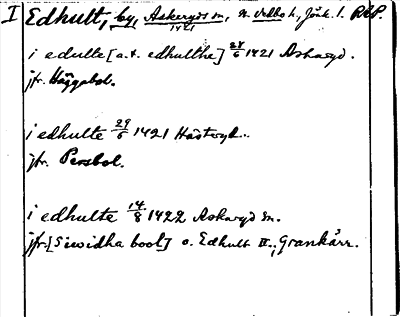 I Edhult, by, Askeryds sn, N. Vedbo h, Jönk. l. RÄP.
1421
i edulte [a.t. edhulthe] 24/6 1421 Askaryd.
jfr. Häggebol.
i edhulte 29/6 1421 Hästeryd.
jfr. Persbol.
i edhulte 14/8 1422 Askaryd sn.
jfr. [Siwidha bool] o. Edhult II., Grankärr.